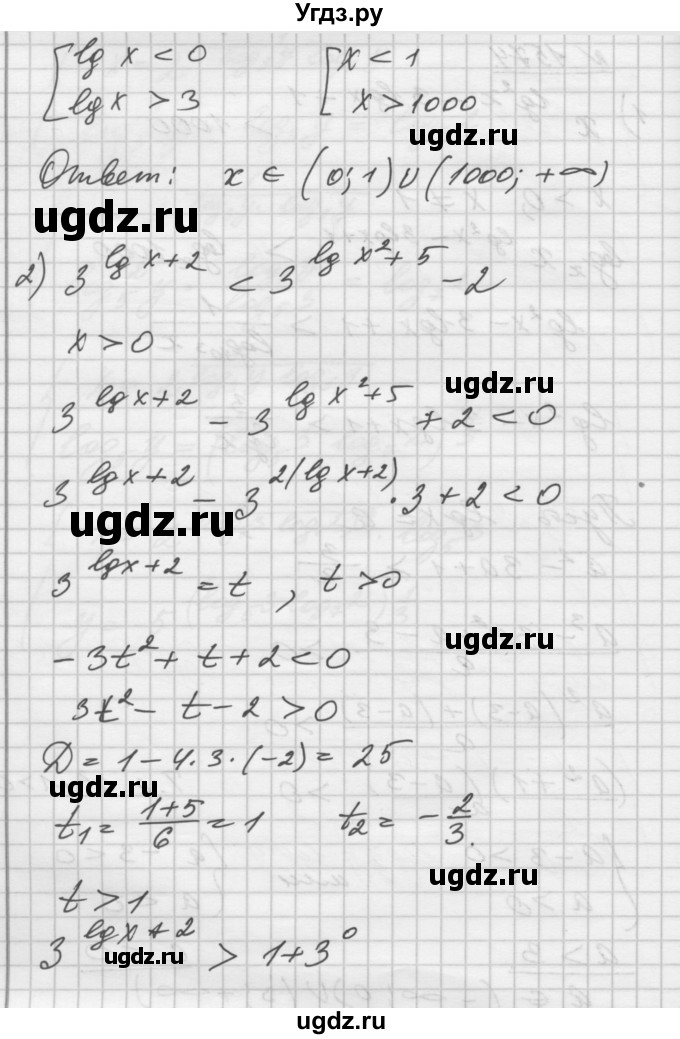 Угдз.ру
[ lg x < 0    [ x < 1
[ lg x > 3    [ x > 1000
ugdz.ru
Ответ: x ∈ (0; 1) ∪ (1000; +∞)
ugdz.ru
2) 3^(lg x + 2) < 3^(lg x² + 5) - 2
x > 0
ugdz.ru
3^(lg x + 2) - 3^(lg x² + 5) + 2 < 0
3^(lg x + 2) - 3^(2(lg x + 2)) · 3 + 2 < 0
ugdz.ru
3^(lg x + 2) = t, t > 0
ugdz.ru
-3t² + t + 2 < 0
3t² - t - 2 > 0
D = 1 - 4·3·(-2) = 25
ugdz.ru
t₁ = (1+5)/6 = 1    t₂ = -2/3.
ugdz.ru
t > 1
3^(lg x + 2) > 1 + 3⁰
ugdz.ru
ugdz.ru